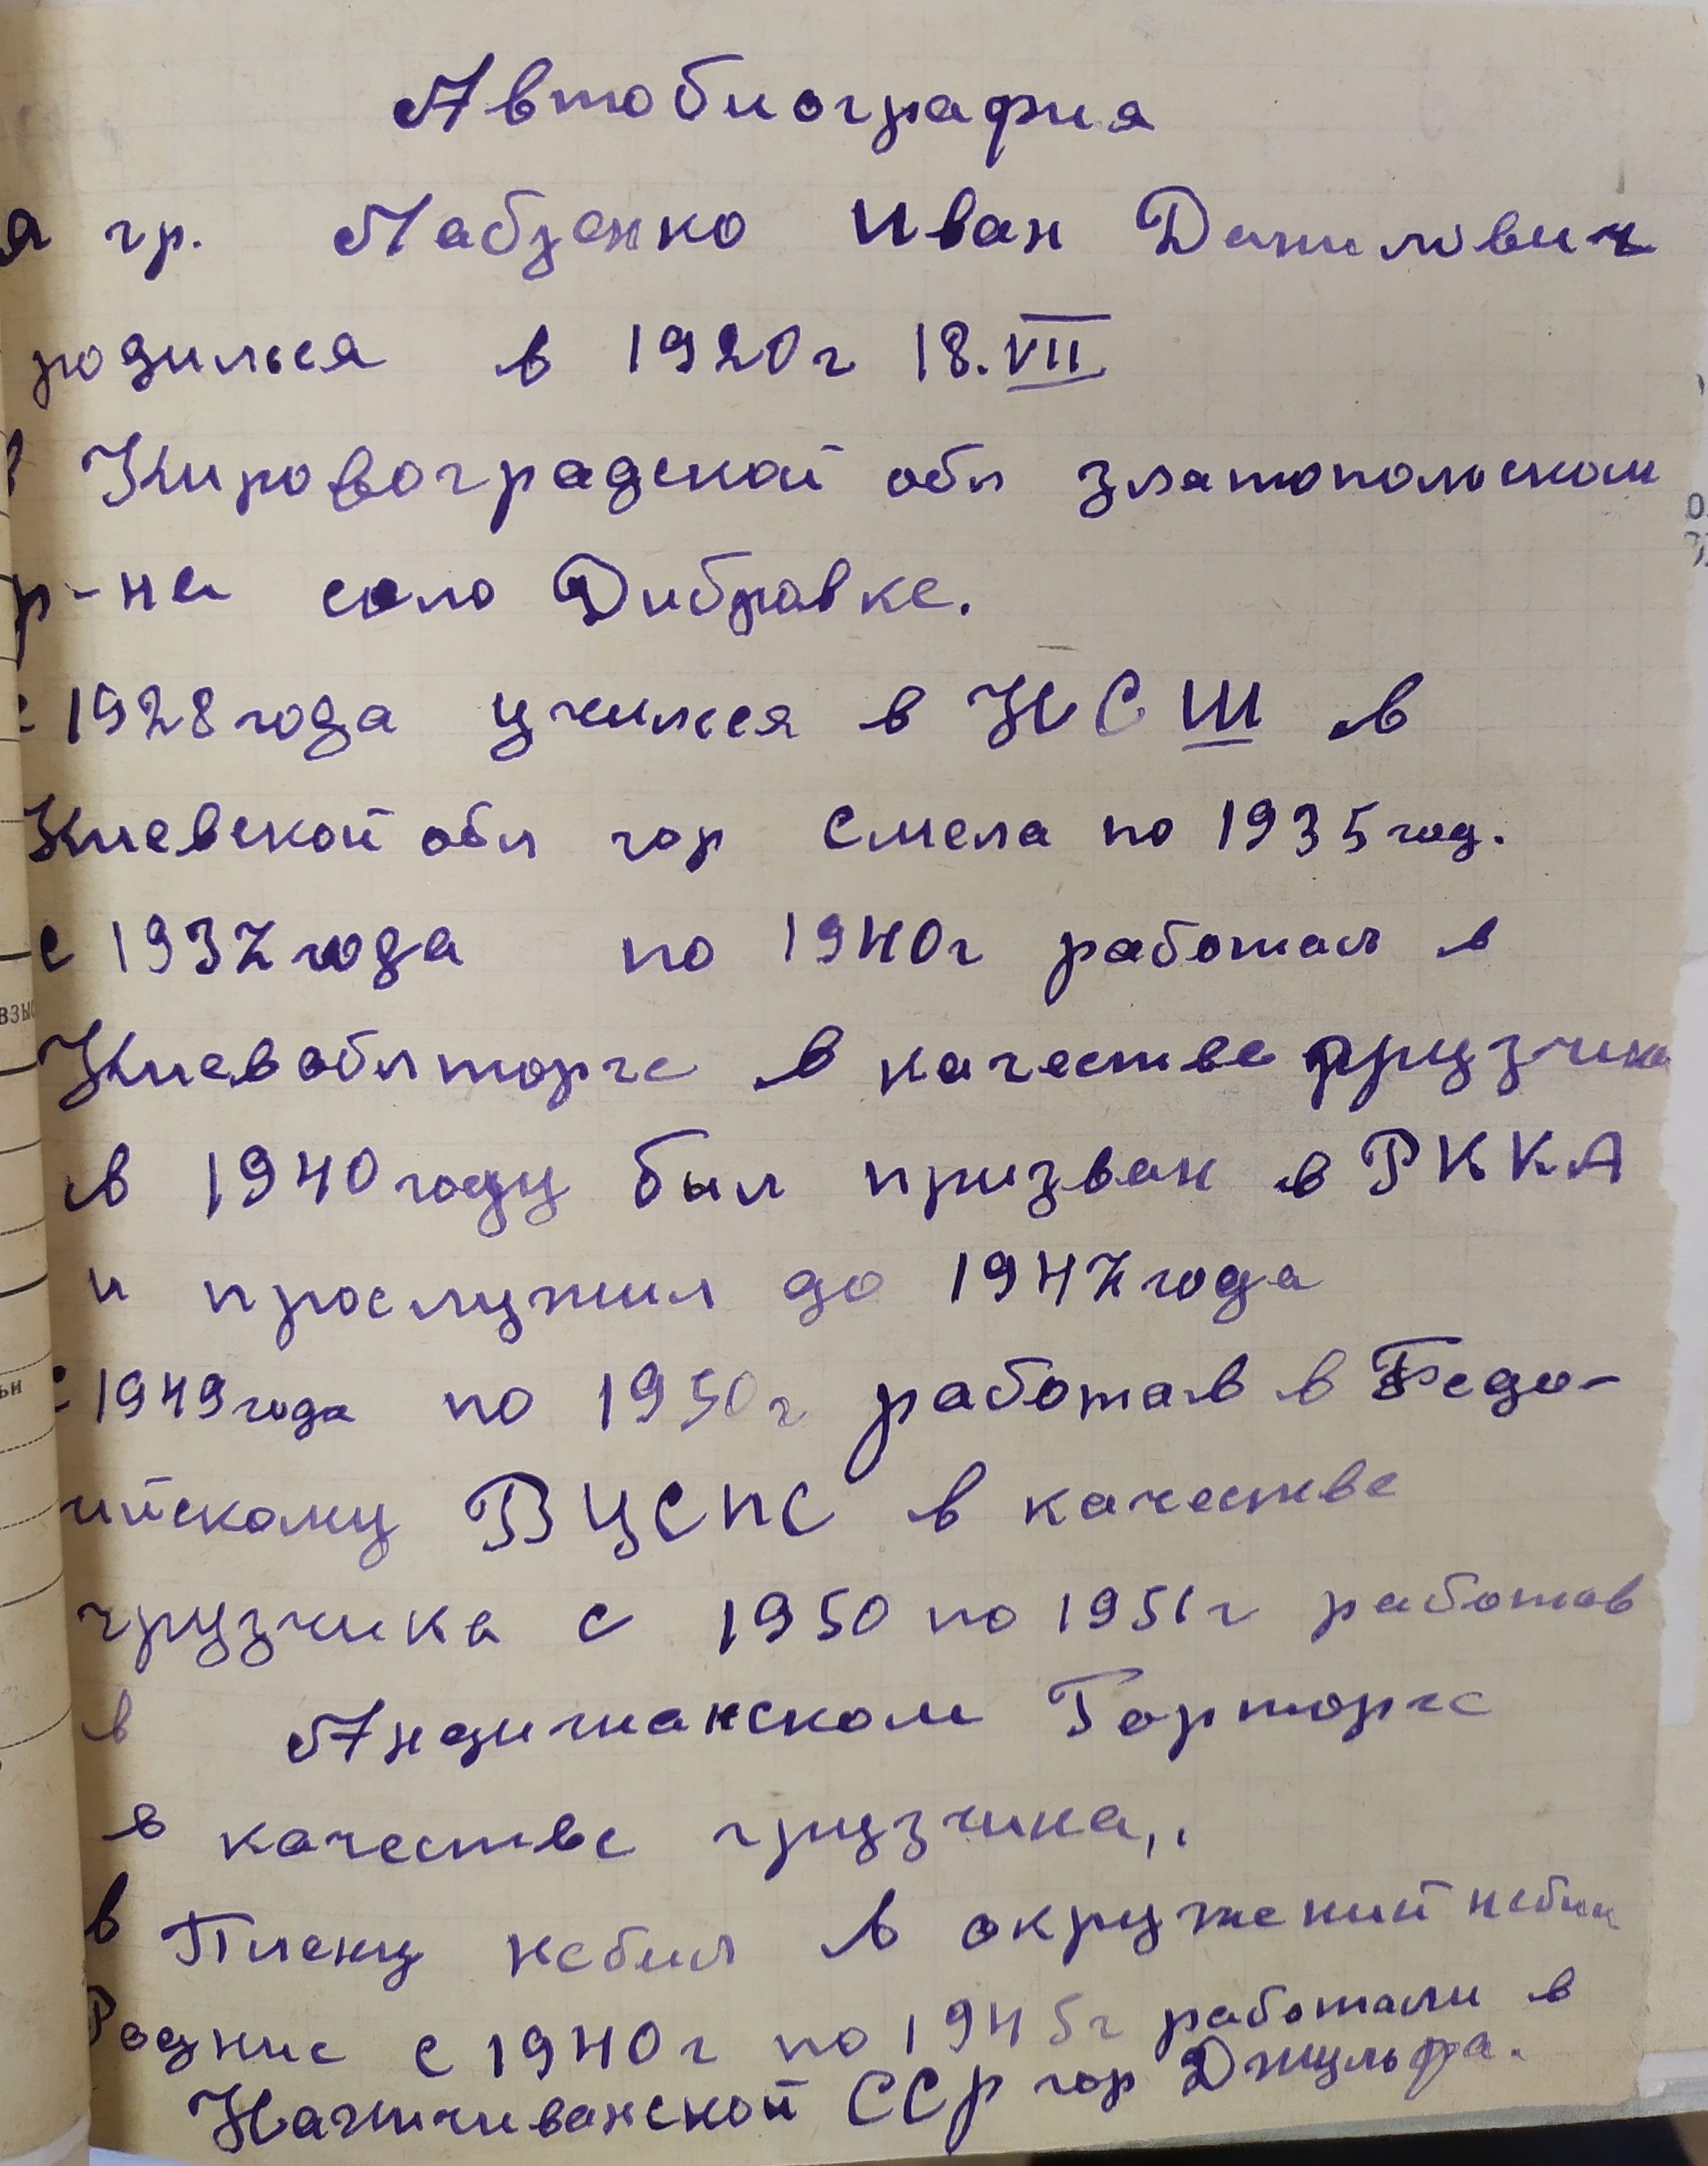 Автобиография
я гр. Лабзенко Иван Данилович
родился в 1920г 18.VII
в Кировоградской обл златопольском
р-не село Дибровке.
с 1928 года учился в НСШ в
Киевской обл гор Смела по 1935 год.
с 1937 года по 1940г работал в
Киевоблторге в качестве грузчика
в 1940 году был призван в РККА
и прослужил до 1947 года
с 1949 года по 1950г работав в
ВЦСПС в качестве
грузчика с 1950 по 1951г работав
в Андижанском Горторге
в качестве грузчика,.
в Плену небил в окружений небил
Родние с 1940г по 1945г работали в
Нахичиванской ССР гор Джульфа.
взыс
ьи